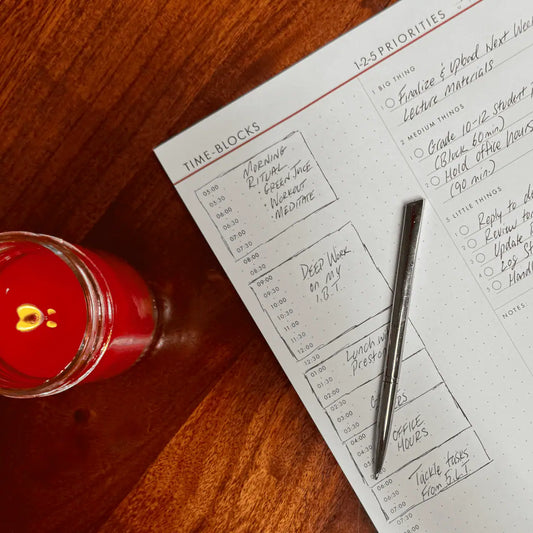 TIME-BLOCKS
05:00
05:30
06:00
06:30
07:00
07:30
08:00
08:30
09:00
09:30
10:00
10:30
11:00
11:30
12:00
12:30
01:00
01:30
02:00
02:30
03:00
03:30
04:00
04:30
05:00
05:30
06:00
06:30
07:00
07:30
MORNING
RITUAL
• GREEN JUICE
• WORKOUT
• MEDITATE
DEEP WORK
ON MY
1.B.T.
Lunch
Preston
OFFICE
HOURS
Tackle tasks
From 5.L.T.
1-2-5 PRIORITIES
1 BIG THING
Finalize & Upload Next Week
Lecture Materials
2 MEDIUM THINGS
1 Grade 10-12 Student
(Block 60min)
2 Hold office hours
(90 min)
5 LITTLE THINGS
1 Reply to
2 Review
3 Update
4 Log
5
NOTES